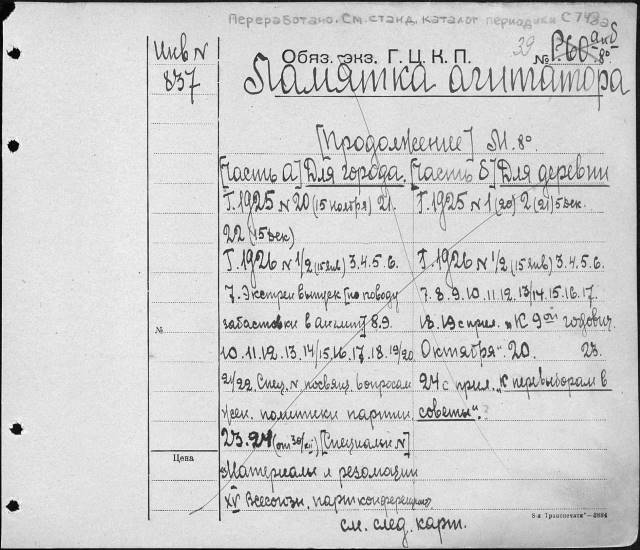 Переработано. См. станд. каталог периодики С 743а
Инв N
837
Обяз. экз. Г. Ц. К. П.
39
№
Памятка агитатора
[Продолжение] М. 8°
[Часть а] Для города. [Часть б] Для деревни
Г. 1925 N 20 (15 ноября) 21. Г. 1925 N 1 (20) 2 (21) 5 дек.
22 (15 дек)
Г. 1926 N 1/2 (15 янв) 3.4.5.6. Г. 1926 N 1/2 (15 янв) 3.4.5.6.
7. Экстрен выпуск [по поводу 7.8.9.10.11.12.13/14.15.16.17.
№ забастовки в англии] 8.9. 18.19 с прил. „К 9ой годовщ.
10.11.12.13.14/15.16.17.18.19/20 Октября". 20. 23.
21/22. Спец. N посвящ. вопросам 24 с прил. „К перевыборам в
жен. политики партии. советы".
23.24 (от 30/XII) [Специальн N]
Цена
Материалы и резолюции
XV Всесоюзн. партконференции
см. след. карт.
8-я Транспечати"—2884